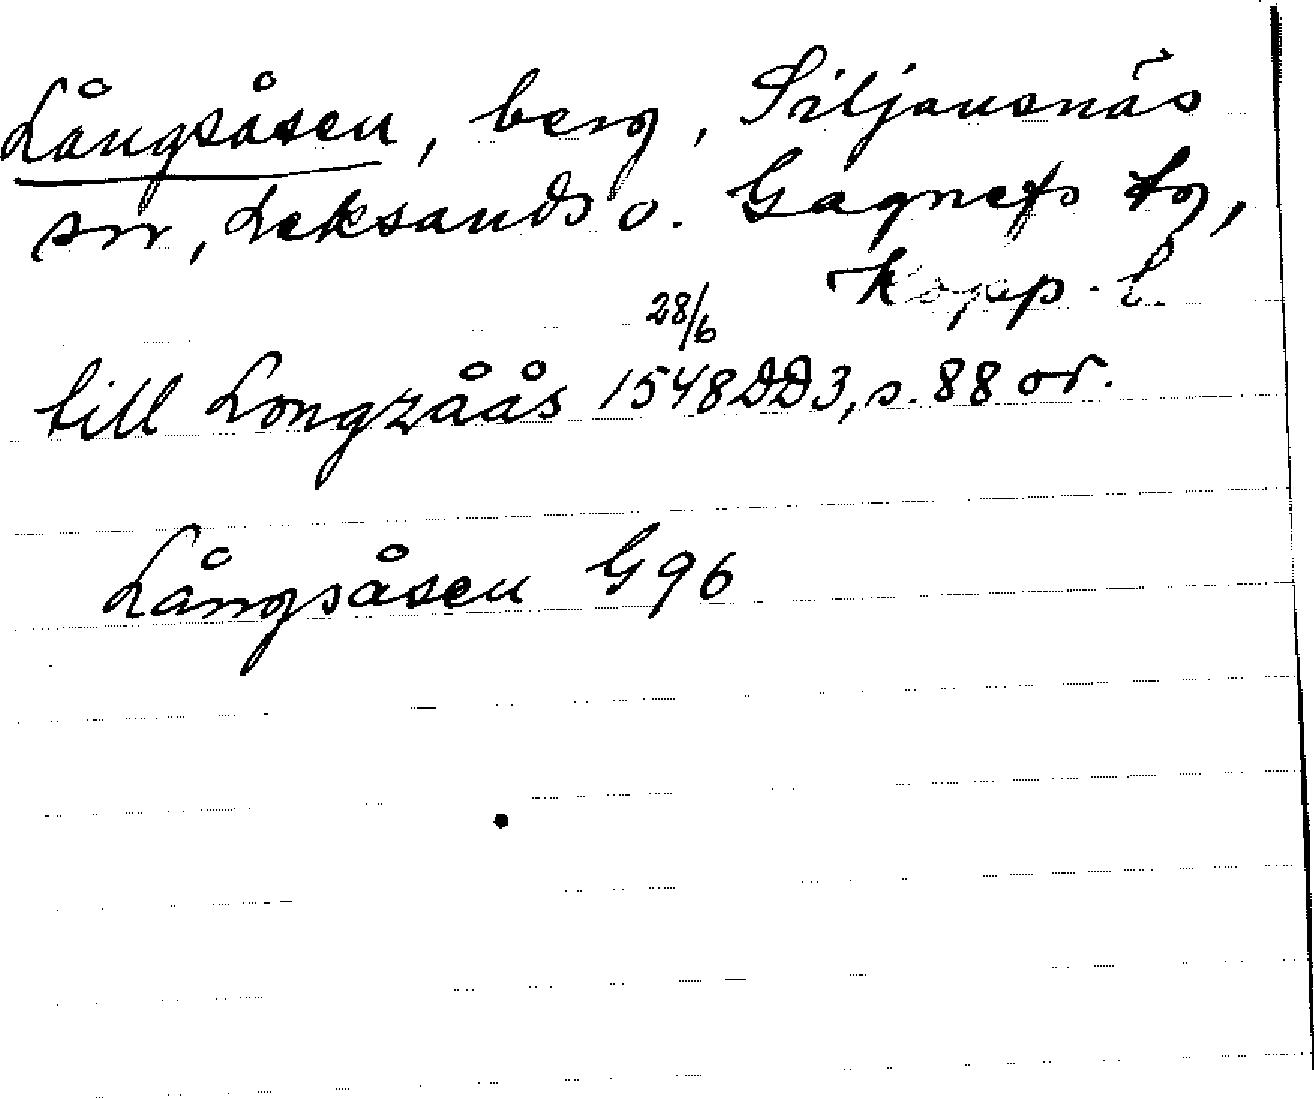 Långsåsen, berg, Siljansnäs
sn, Leksands o. Gagnefs tg,
Kopp. l.
28/6
till Longzåås 1548 DD3, s. 88 or.
Långsåsen G96